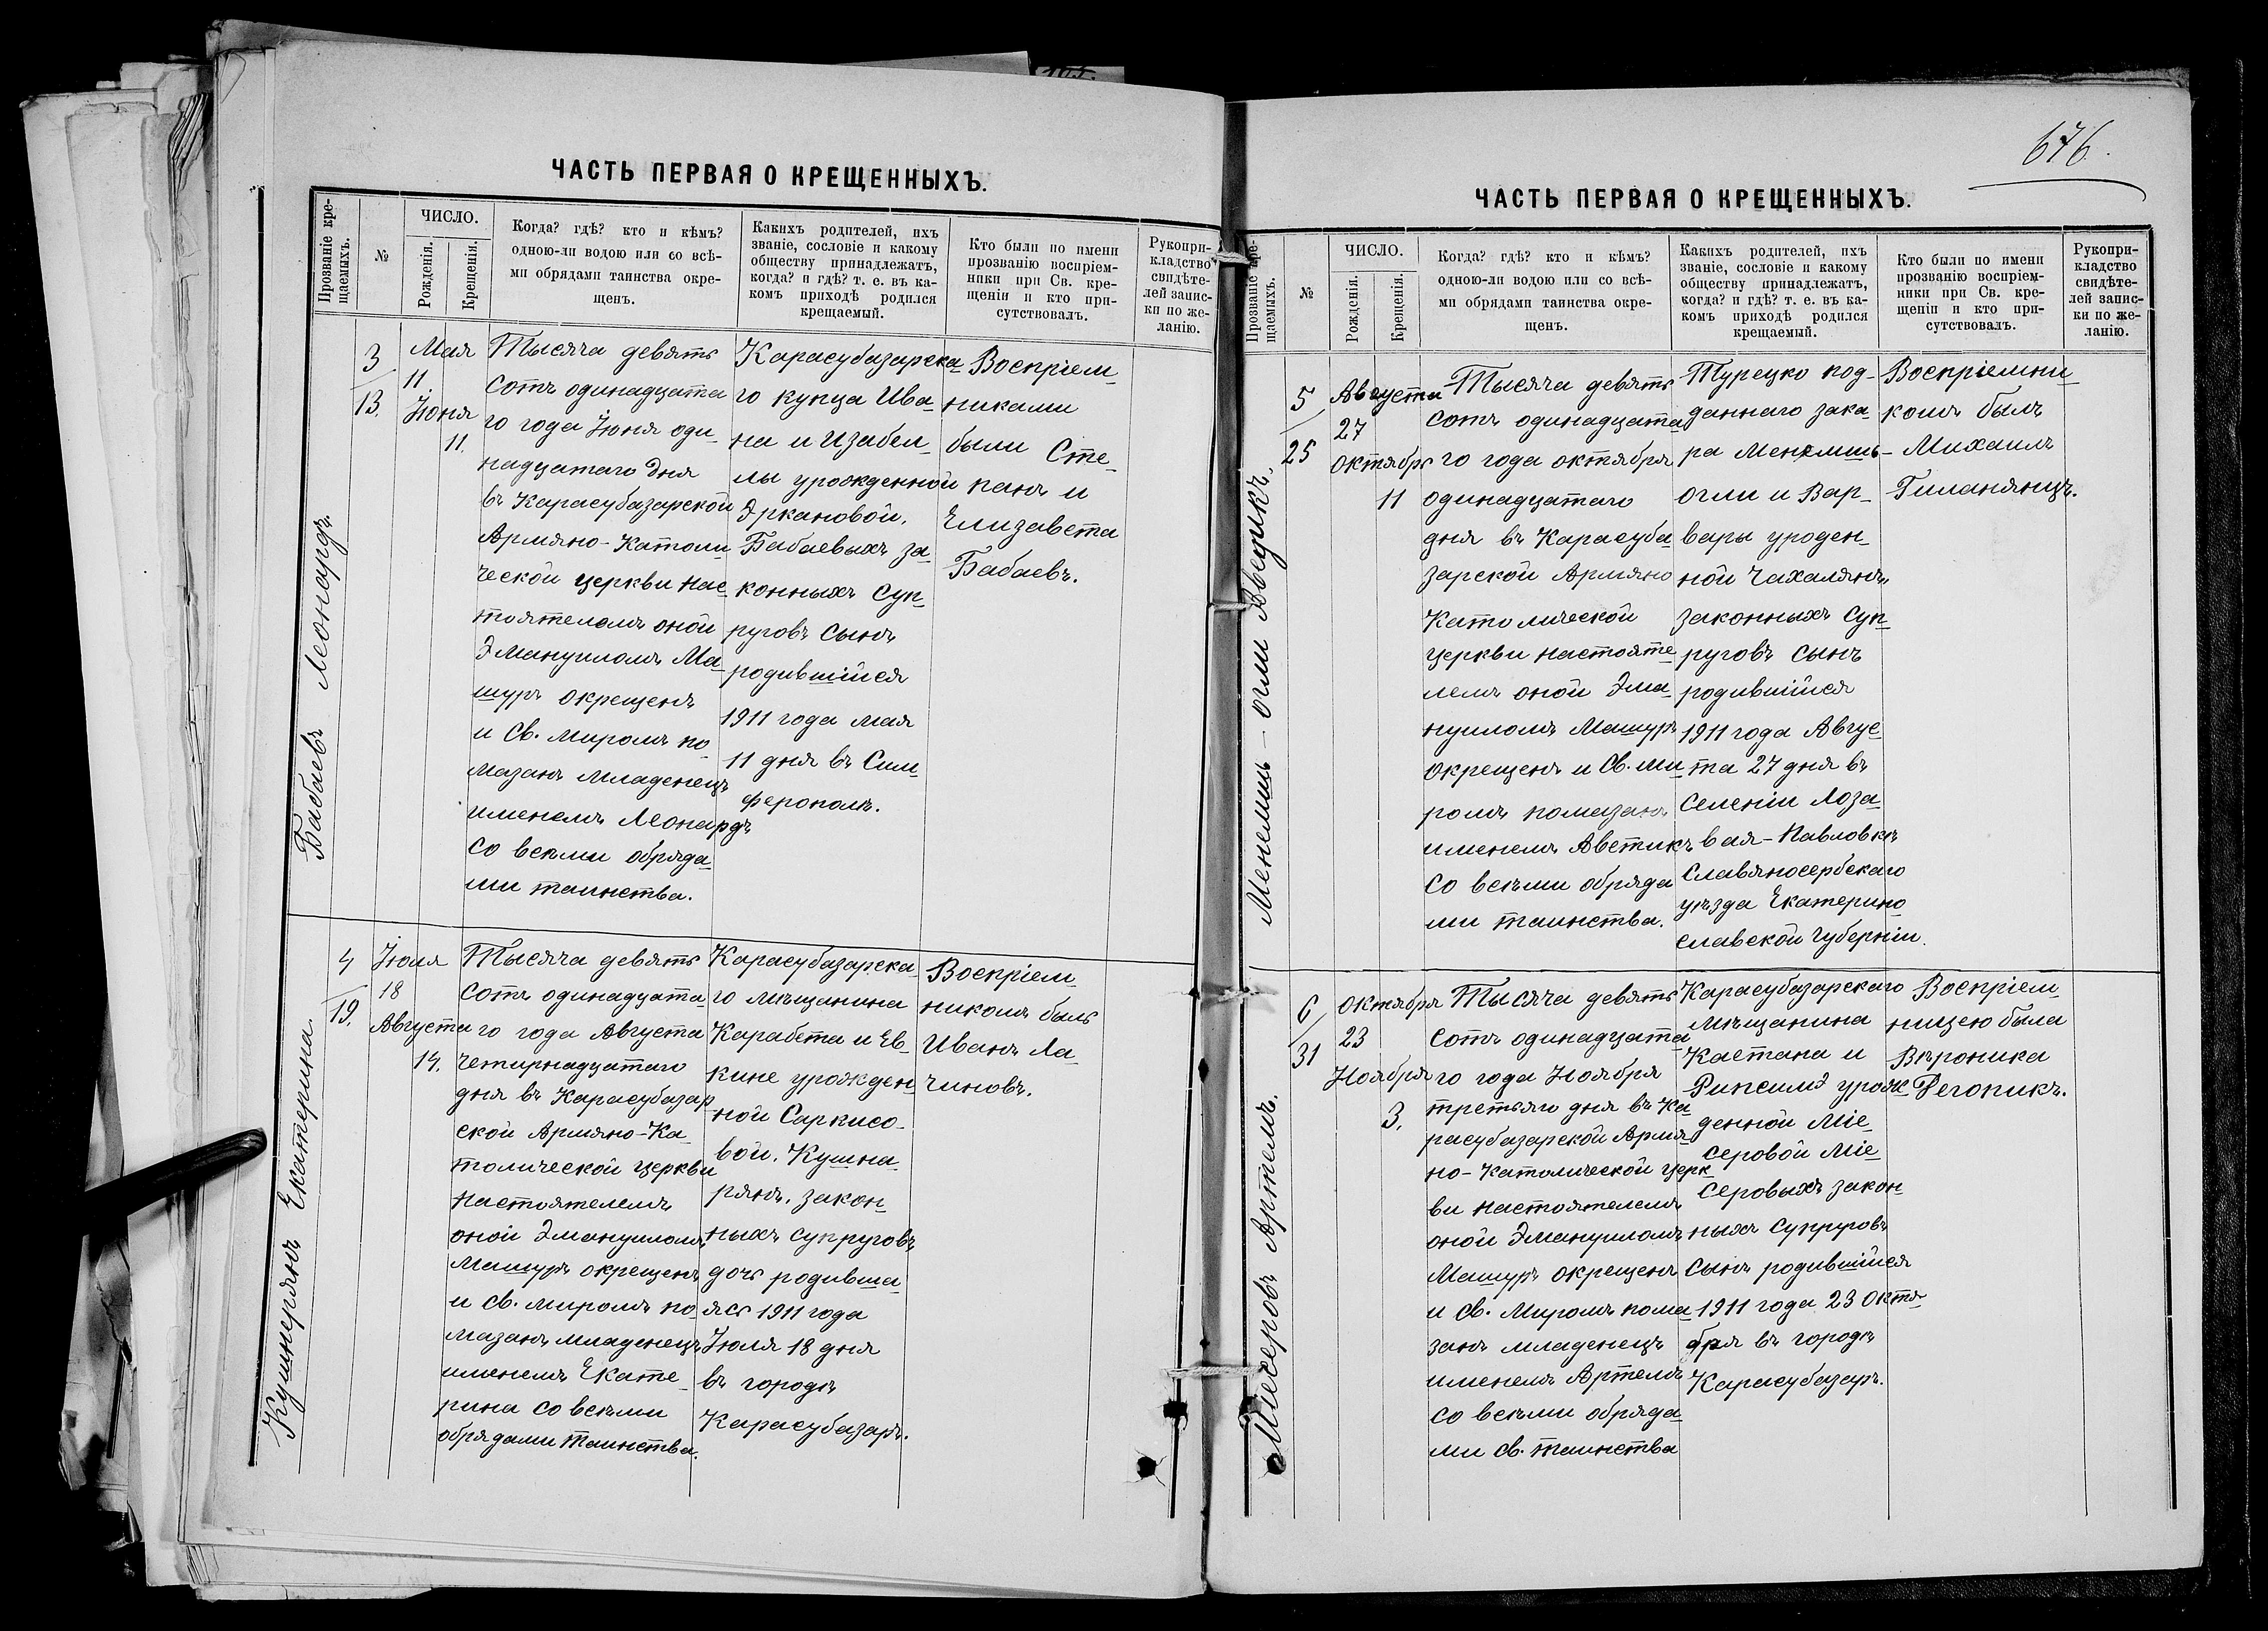 ЧАСТЬ ПЕРВАЯ О КРЕЩЕННЫХЪ.
Прозваніе кре-
щаемыхъ.
№
ЧИСЛО.
Рожденія.
Крещенія.
Когда? гдѣ? кто и кѣмъ?
одною-ли водою или со всѣ-
ми обрядами таинства окре-
щенъ.
Какихъ родителей, ихъ
званіе, сословіе и какому
обществу принадлежатъ,
когда? и гдѣ? т. е. въ ка-
комъ приходѣ родился
крещаемый.
Кто были по имени
прозванію воспріем-
ники при Св. кре-
щеніи и кто при-
сутствовалъ.
Рукопри-
кладство
свидѣте-
лей запис-
ки по же-
ланію.
Бабаевъ Леонардъ.
3
13.
Мая
11.
Іюня
11.
Тысяча девять
сотъ одинадцата
го года Іюня оди-
надцатаго дня
въ Карасубазарской
Армяно-Католи
ческой церкви нас-
тоятелемъ оной
Эмануиломъ Ма-
шуръ окрещенъ
и Св. миромъ по-
мазанъ младенецъ
именемъ Леонардъ
со всѣми обряда
ми таинства.
Карасубазарска
го купца Ива-
на и Изабел-
лы урожденной
Эркановой.
Бабаевыхъ за-
конныхъ суп-
руговъ сынъ
родившійся
1911 года мая
11 дня въ Сим-
ферополѣ.
Воспріем-
никами
были Сте-
панъ и
Елизавета
Бабаевъ.
Кушнерянъ Екатерина.
4
19.
Іюля
18
Августа
14.
Тысяча девять
сотъ одинадцата-
го года Августа
четырнадцатаго
дня въ Карасубазар
ской Армяно-Ка-
толической церкви
настоятелемъ
оной Эмануиломъ
Машуръ окрещенъ
и св. миромъ по-
мазанъ младенецъ
именемъ Екате-
рина со всѣми
обрядами таинства.
Карасубазарска-
го мѣщанина
Карабета и Ев-
кине урожден-
ной Саркисо-
вой. Кушна-
рянъ. закон-
ныхъ супруговъ
дочь родивша-
яся 1911 года
Іюля 18 дня
въ городѣ
Карасубазаръ.
Воспріем-
никомъ былъ
Иванъ Ла-
чиновъ.
676.
ЧАСТЬ ПЕРВАЯ О КРЕЩЕННЫХЪ.
Прозваніе кре-
щаемыхъ.
№
ЧИСЛО.
Рожденія.
Крещенія.
Когда? гдѣ? кто и кѣмъ?
одною-ли водою или со всѣ-
ми обрядами таинства окре-
щенъ.
Какихъ родителей, ихъ
званіе, сословіе и какому
обществу принадлежатъ,
когда? и гдѣ? т. е. въ ка-
комъ приходѣ родился
крещаемый.
Кто были по имени
прозванію воспріем-
ники при Св. кре-
щеніи и кто при-
сутствовалъ.
Рукопри-
кладство
свидѣте-
лей запис-
ки по же-
ланію.
Менемшь-огли Аветикъ.
5
25
Августа
27
октябрь
11
Тысяча девять
сотъ одинадцата
го года октября
одинадцатаго
дня въ Карасуба-
зарской Армяно
Католической
церкви настояте-
лемъ оной Эма-
нуиломъ Машуръ
окрещенъ и Св. ми
ромъ помазанъ
именемъ Аветикъ
со всѣми обряда
ми таинства.
Турецко под-
даннаго Зака-
ра Менемшь-
огли и Вар-
вары уроден-
ной Чахалянъ,
законныхъ суп-
руговъ сынъ
родившійся
1911 года Авгус-
та 27 дня въ
селеніи Лоза-
вая-Павловкѣ
Славяносербскаго
уѣзда Екатерино
славской губерніи.
Воспріемни-
комъ былъ
Михаилъ
Гиланянцъ.
Місеровъ Артемъ.
6
31
Октября
23
Ноября
3.
Тысяча девять
сотъ одинадцата
го года Ноября
третьяго дня въ Ка-
расубазарской Армя-
но-Католической церк-
ви настоятелемъ
оной Эмануиломъ
Машуръ окрещенъ
и св. Миромъ пома-
занъ младенецъ
именемъ Артемъ
со всѣми обряда-
ми св. таинства
Карасубазарскаго
мѣщанина
Каетана и
Рипсимэ урож-
денной Міс-
серовой Міс-
серовыхъ закон-
ныхъ супруговъ
сынъ родившійся
1911 года 23 октя-
бря въ городѣ
Карасубазаръ.
Воспріем-
ницею была
Вѣроника
Регопикъ.